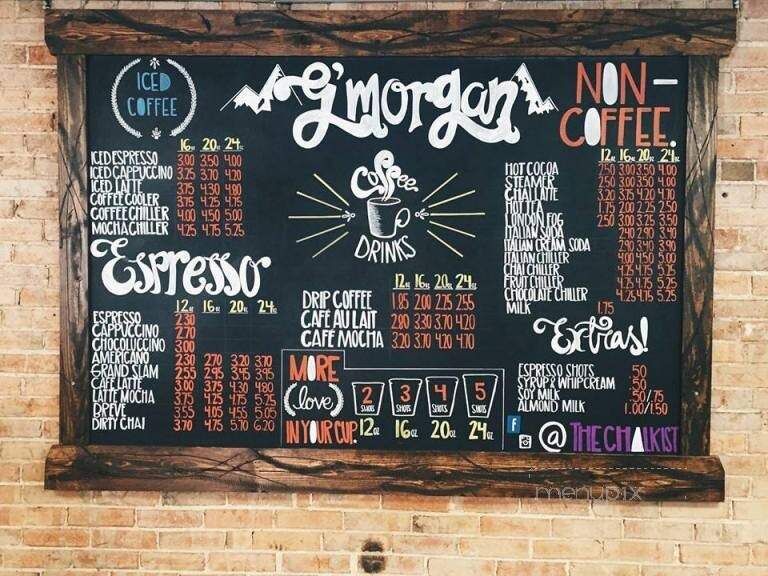 ICED
COFFEE
16oz 20oz 24oz
ICED ESPRESSO 3.00 3.50 4.00
ICED CAPPUCCINO 3.25 3.70 4.20
ICED LATTE 3.75 4.30 4.80
COFFEE COOLER 3.75 4.25 4.75
COFFEE CHILLER 4.00 4.50 5.00
MOCHA CHILLER 4.25 4.75 5.25
Espresso
12oz 16oz 20oz 24oz
ESPRESSO 2.30
CAPPUCCINO 2.70
CHOCOLUCCINO 3.00
AMERICANO 2.30 2.70 3.20 3.70
GRAND SLAM 2.55 2.95 3.45 3.95
CAFE LATTE 3.00 3.75 4.30 4.80
LATTE MOCHA 3.75 4.25 4.75 5.25
BREVE 3.55 4.05 4.55 5.05
DIRTY CHAI 3.70 4.75 5.70 6.20
G'morgan
Coffee
DRINKS
12oz 16oz 20oz 24oz
DRIP COFFEE 1.85 2.00 2.75 2.55
CAFE AU LAIT 2.80 3.30 3.70 4.20
CAFE MOCHA 3.20 3.70 4.20 4.70
MORE
love
IN YOUR CUP.
2 SHOTS 3 SHOTS 4 SHOTS 5 SHOTS
12oz 16oz 20oz 24oz
NON-
COFFEE.
12oz 16oz 20oz 24oz
HOT COCOA 2.50 3.00 3.50 4.00
STEAMER 2.50 3.00 3.50 4.00
CHAI LATTE
LONDON FOG 2.50 3.00 3.25 3.50
ITALIAN SODA 2.40 2.90 3.40
ITALIAN CREAM SODA 2.90 3.40 3.90
ITALIAN CHILLER 4.00 4.50 5.00
CHAI CHILLER 4.25 4.75 5.25
FRUIT CHILLER 4.25 4.75 5.25
CHOCOLATE CHILLER 4.25 4.75 5.25
MILK 1.75
Extras!
ESPRESSO SHOTS .50
SYRUP & WHIP CREAM .50
SOY MILK .50/.75
ALMOND MILK 1.00/1.50
f
@THECHALKIST
menupix